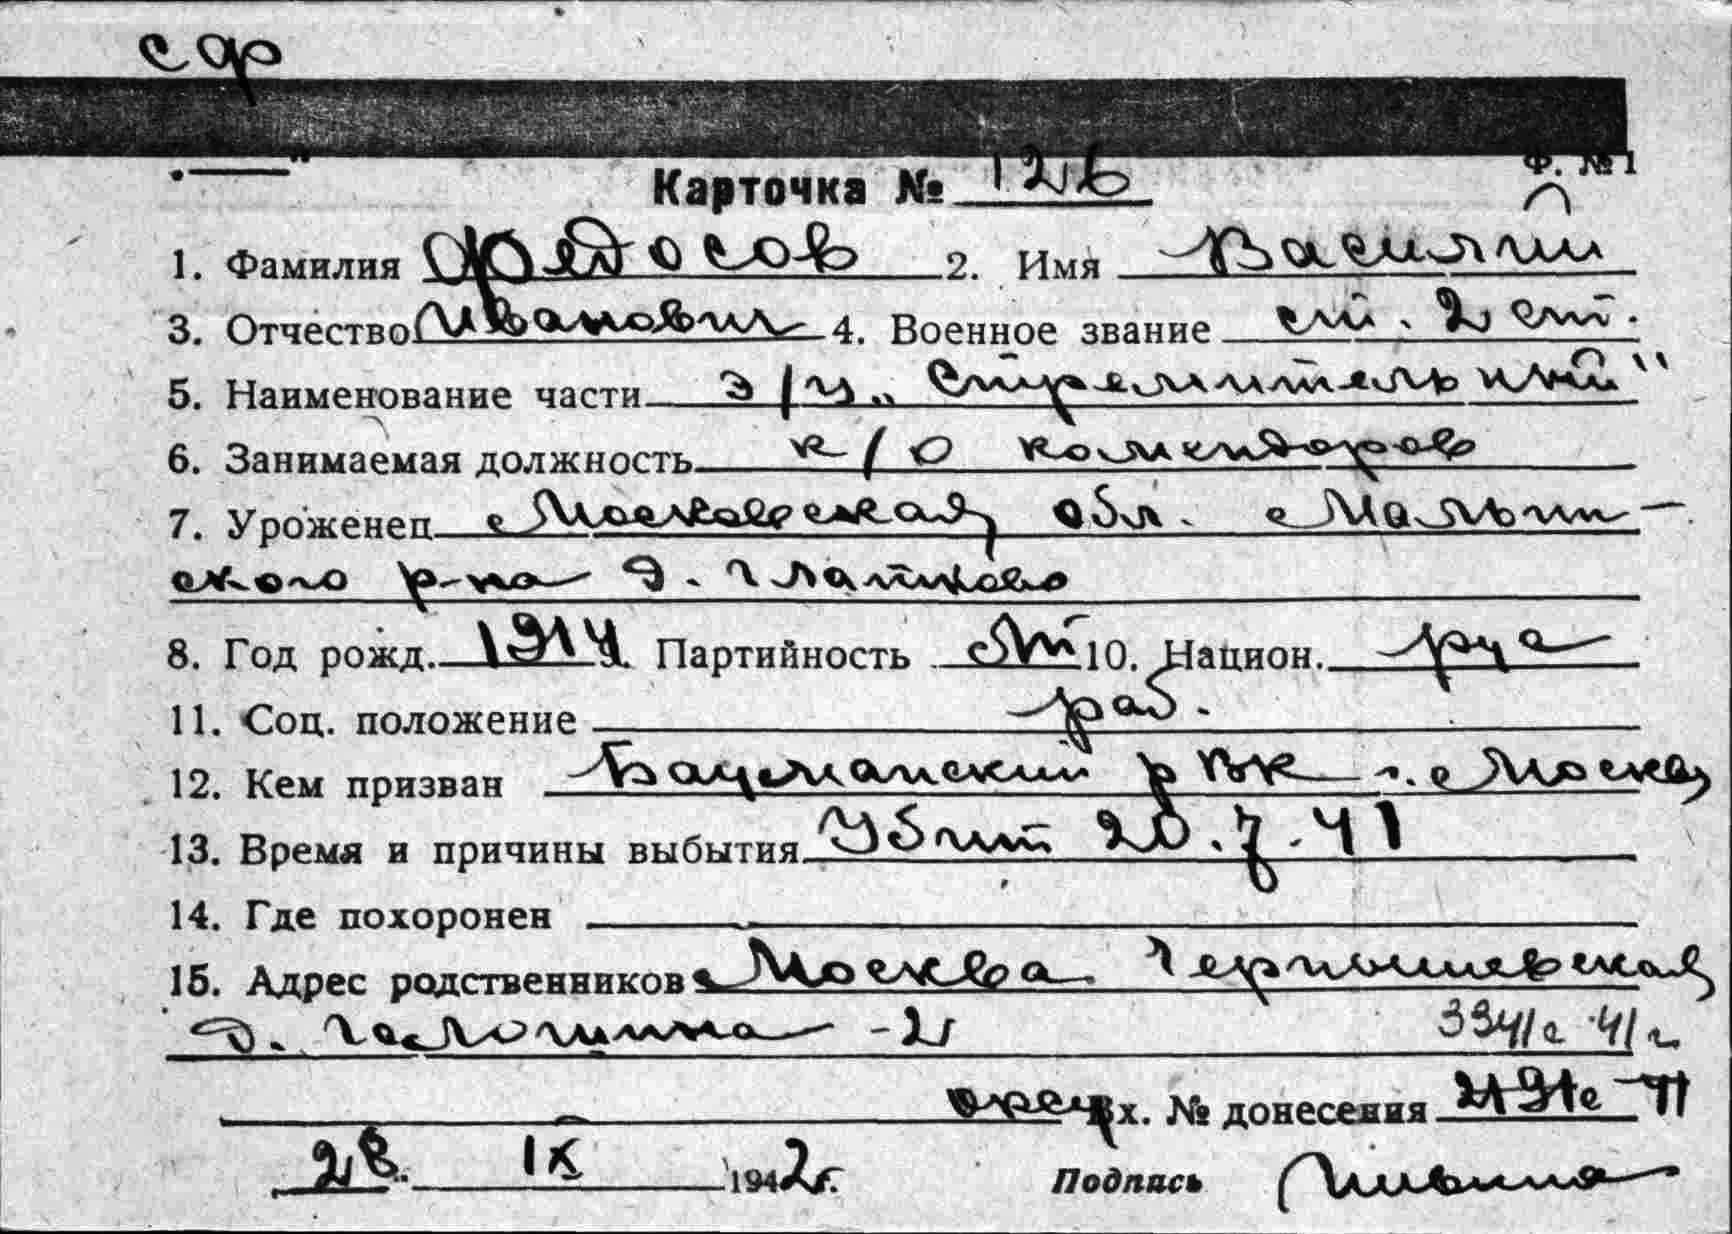 сф
Ф. № 1
Карточка № 126
1. Фамилия Федосов 2. Имя Василий
3. Отчество Иванович 4. Военное звание ст. 2 ст.
5. Наименование части э/м „Стремительный"
6. Занимаемая должность к/о комендоров
7. Уроженец Московская обл. Малин-
ского р-на д. Глатково
8. Год рожд. 1914 9. Партийность 10. Национ. рус
11. Соц. положение раб.
12. Кем призван Бауманский РВК г. Москва
13. Время и причины выбытия Убит 20.7.41
14. Где похоронен
15. Адрес родственников Москва Чернышевская
д. -2
334/с 41 г.
Вх. № донесения
28 IX 1942 г. Подпись